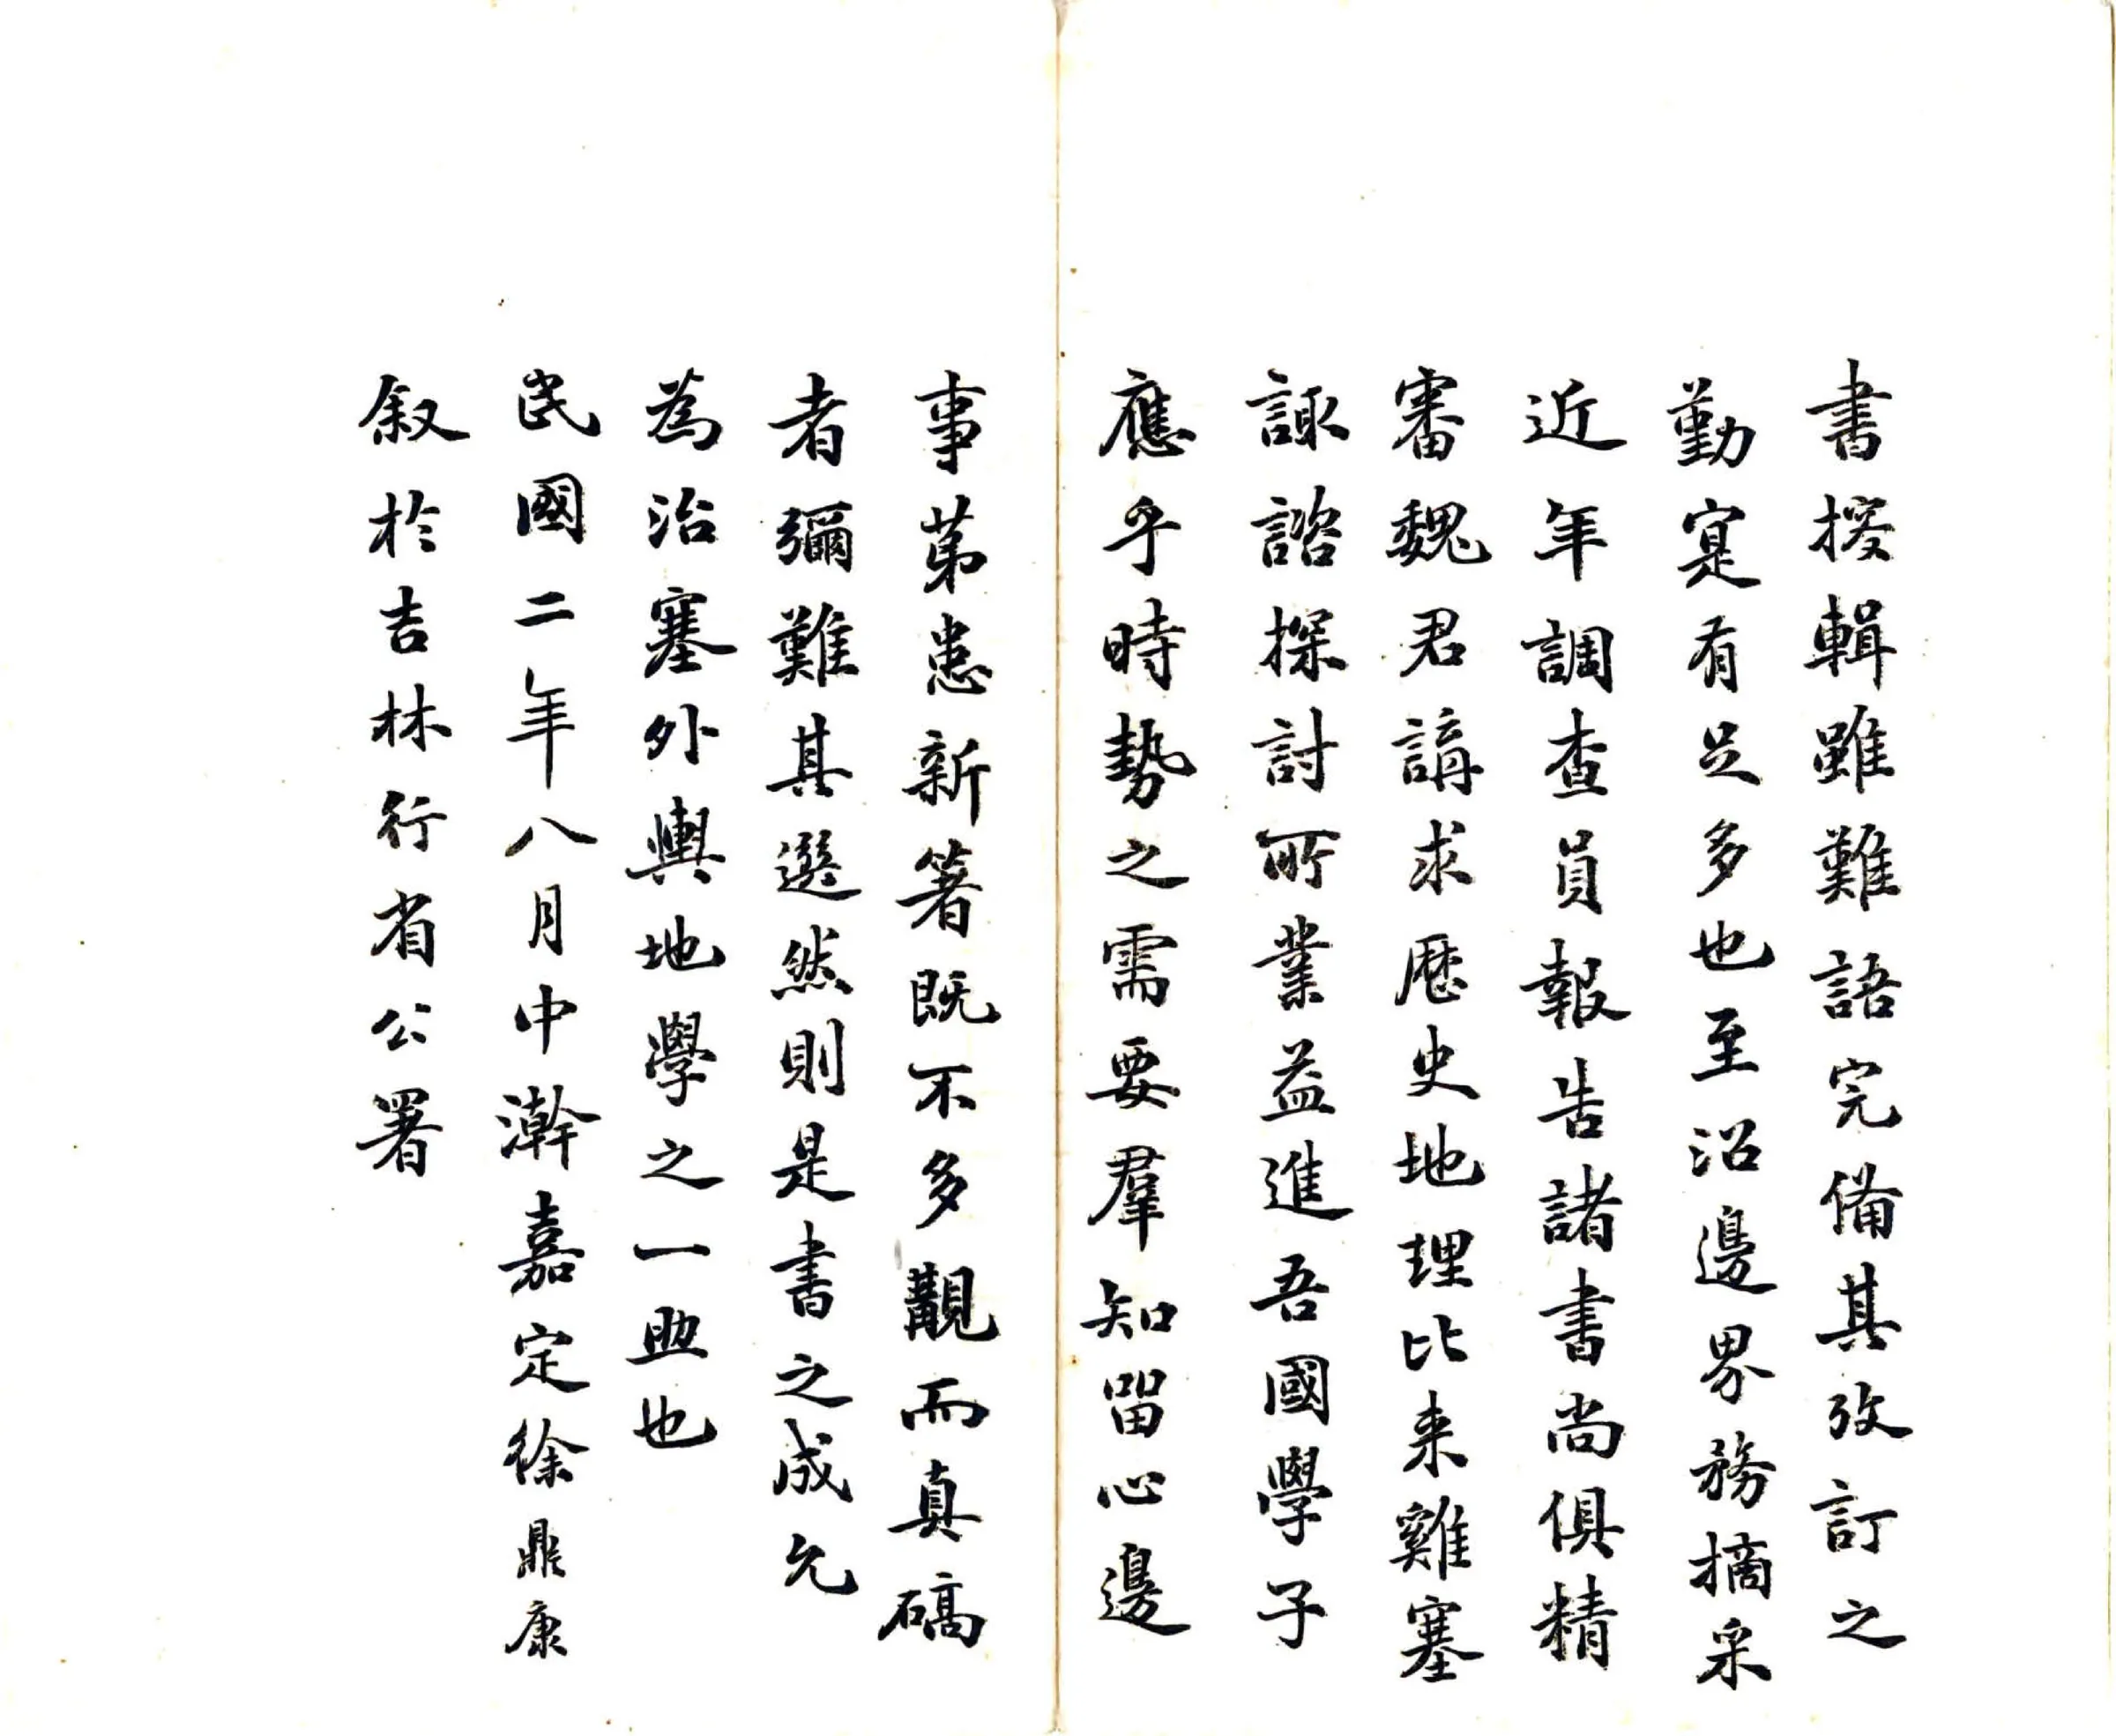 書搜輯雖難語完備其攷訂之
勤寔有足多也至沿邊界務摘采
近年調查員報告諸書尚俱精
審魏君講求歷史地理比来雞塞
諏諮探討所業益進吾國學子
應乎時勢之需要羣知留心邊
事苐患新著既不多覯而真碻
者彌難其選然則是書之成允
為治塞外輿地學之一助也
民國二年八月中澣嘉定徐鼎康
叙於吉林行省公署